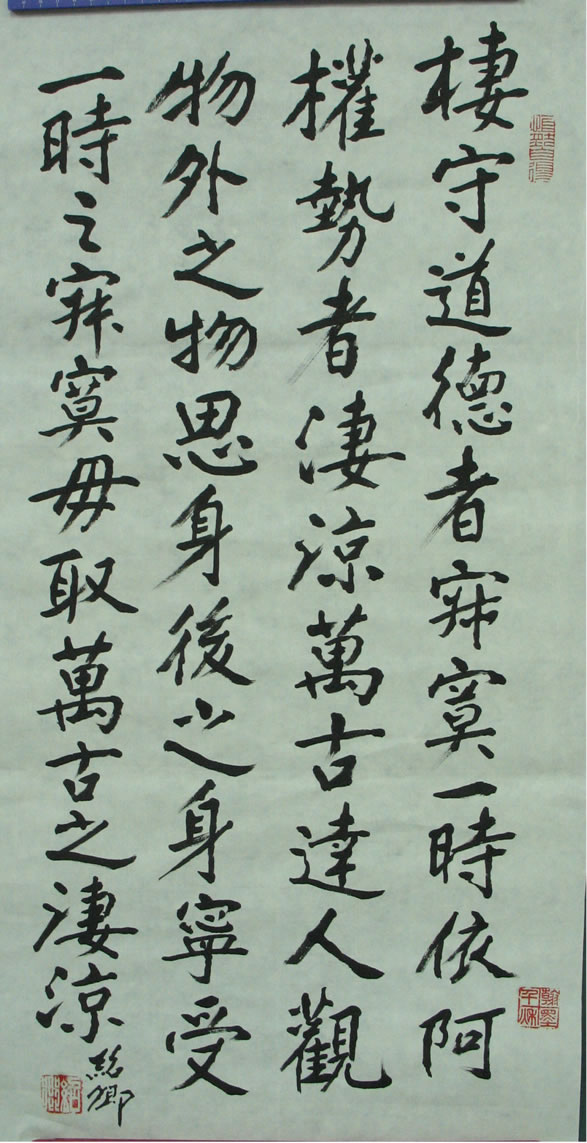 棲守道德者寂寞一時依阿
權勢者淒涼萬古達人觀
物外之物思身後之身寧受
一時之寂寞毋取萬古之淒涼